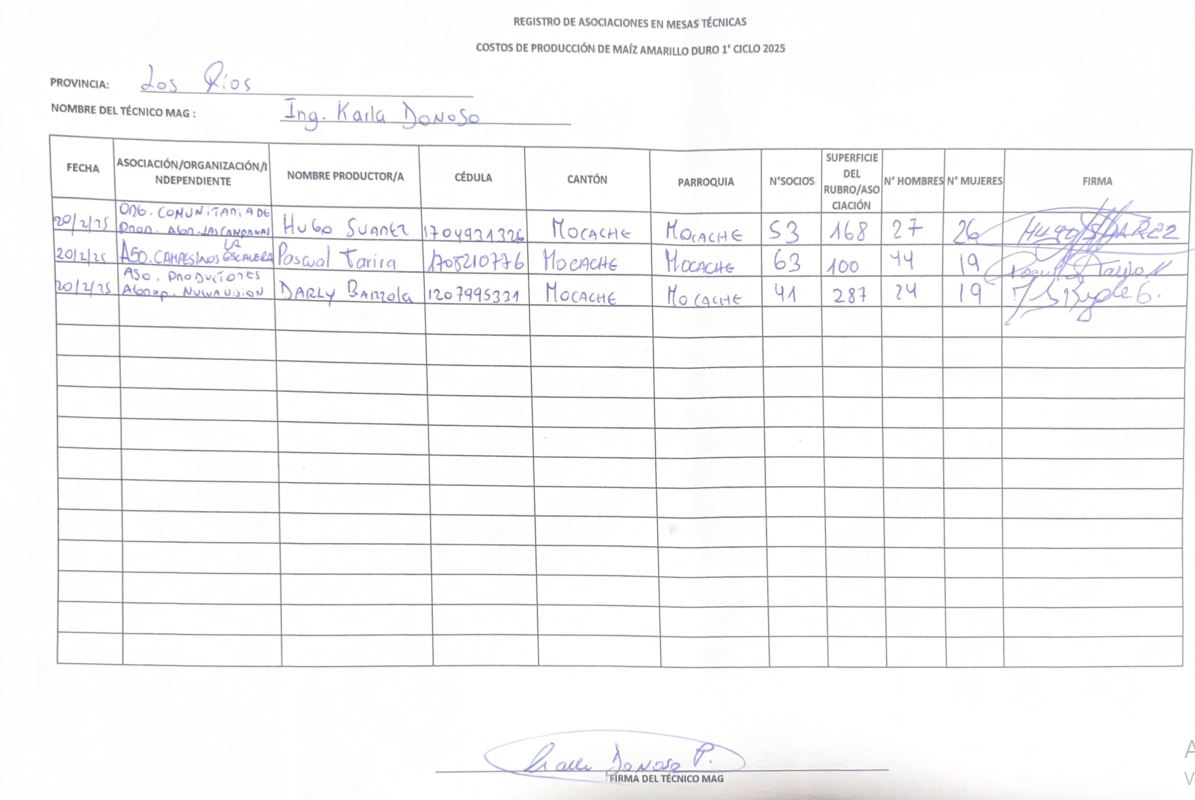 REGISTRO DE ASOCIACIONES EN MESAS TÉCNICAS
COSTOS DE PRODUCCIÓN DE MAÍZ AMARILLO DURO 1° CICLO 2025
PROVINCIA: Los Ríos
NOMBRE DEL TÉCNICO MAG : Ing. Karla Donoso
FECHA ASOCIACIÓN/ORGANIZACIÓN/INDEPENDIENTE NOMBRE PRODUCTOR/A CÉDULA CANTÓN PARROQUIA N°SOCIOS SUPERFICIE DEL RUBRO/ASOCIACIÓN N° HOMBRES N° MUJERES FIRMA
20/2/25 ORG. COMUNITARIA DE PROD. AGRO. LAS CAMPANAS Hugo Suarez 1704931326 MOCACHE MOCACHE 53 168 27 26 HUGO SUAREZ
20/2/25 ASO. CAMPESINOS LA ESCALERA Pascual Tarira 1705210776 MOCACHE MOCACHE 63 100 44 19
20/2/25 ASO. PRODUCIONES AGROP. NUEVA VISION DARLY Barzola 1207995331 MOCACHE MOCACHE 41 287 24 19
Donoso P.
FIRMA DEL TÉCNICO MAG